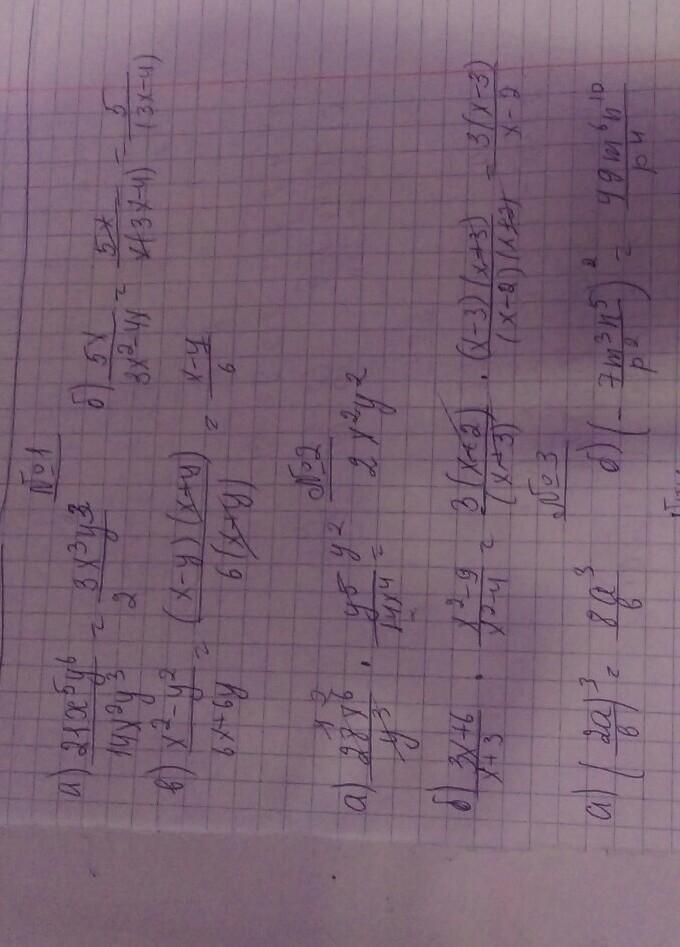 №1
а) 21x⁵y⁶/14x²y³ = 3x³y³/2 б) 5x/3x²-4x = 5x/x(3x-4) = 5/(3x-4)
в) x²-y²/6x+6y = (x-y)(x+y)/6(x+y) = x-y/6
№2
а) 28x⁶/y³ · y⁵/14x⁴ = 2x²y²
б) 3x+6/x+3 · x²-9/x²-4 = 3(x+2)/(x+3) · (x-3)(x+3)/(x-2)(x+2) = 3(x-3)/x-2
№3
а) (2a/b)³ = 8a³/b б) (-7m³n⁵/p²)² = 49m⁶n¹⁰/p⁴